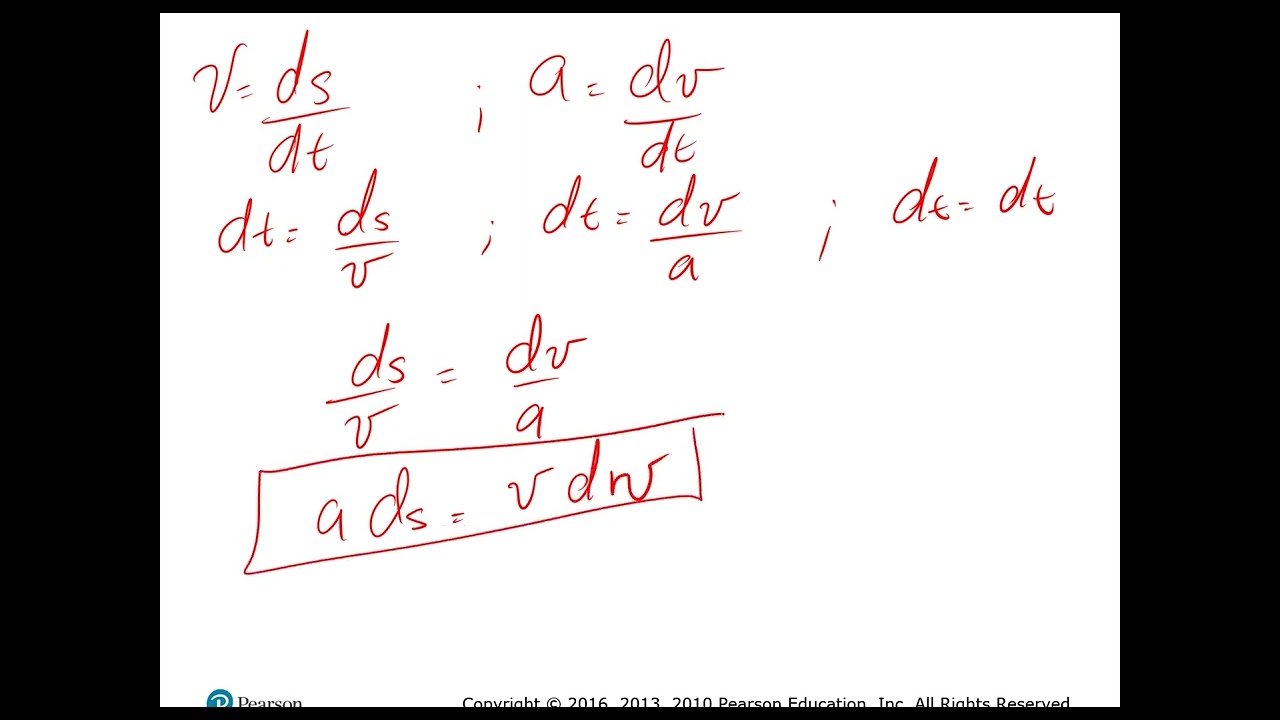 v = ds/dt ; a = dv/dt
dt = ds/v ; dt = dv/a ; dt = dt
ds/v = dv/a
a ds = v dv
Pearson
Copyright © 2016, 2013, 2010 Pearson Education, Inc. All Rights Reserved